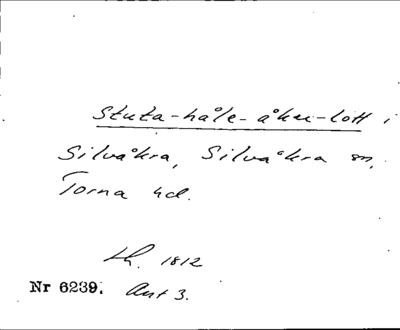 Stuta-håle-åker-lott i
Silvåkra, Silvåkra sn,
Torna hd.
Lh. 1812
Nr 6239. Akt 3.